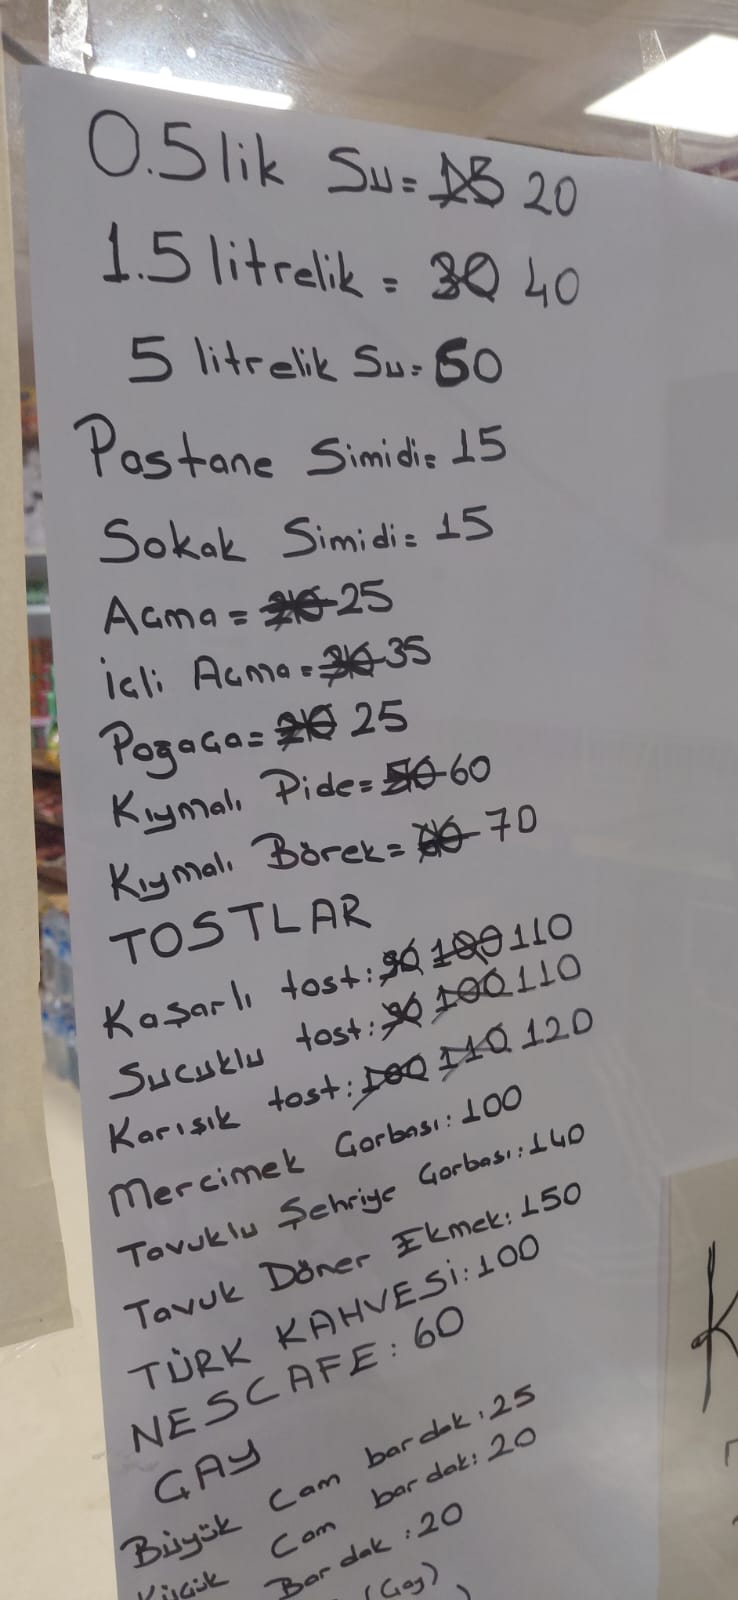 0.5lik Su= 15 20
1.5 litrelik = 30 40
5 litrelik Su= 60
Pastane Simidi= 15
Sokak Simidi= 15
Açma= 20 25
İçli Açma= 30 35
Pogaça= 20 25
Kıymalı Pide= 50 60
Kıymalı Börek= 60 70
TOSTLAR
Kaşarlı tost: 90 100 110
Sucuklu tost: 90 100 110
Karışık tost: 100 110 120
Mercimek Çorbası: 100
Tavuklu Şehriye Çorbası: 140
Tavuk Döner Ekmek: 150
TÜRK KAHVESİ: 100
NESCAFE: 60
ÇAY
Büyük Cam bardak: 25
Küçük Cam bardak: 20
Bardak: 20
(Çay)